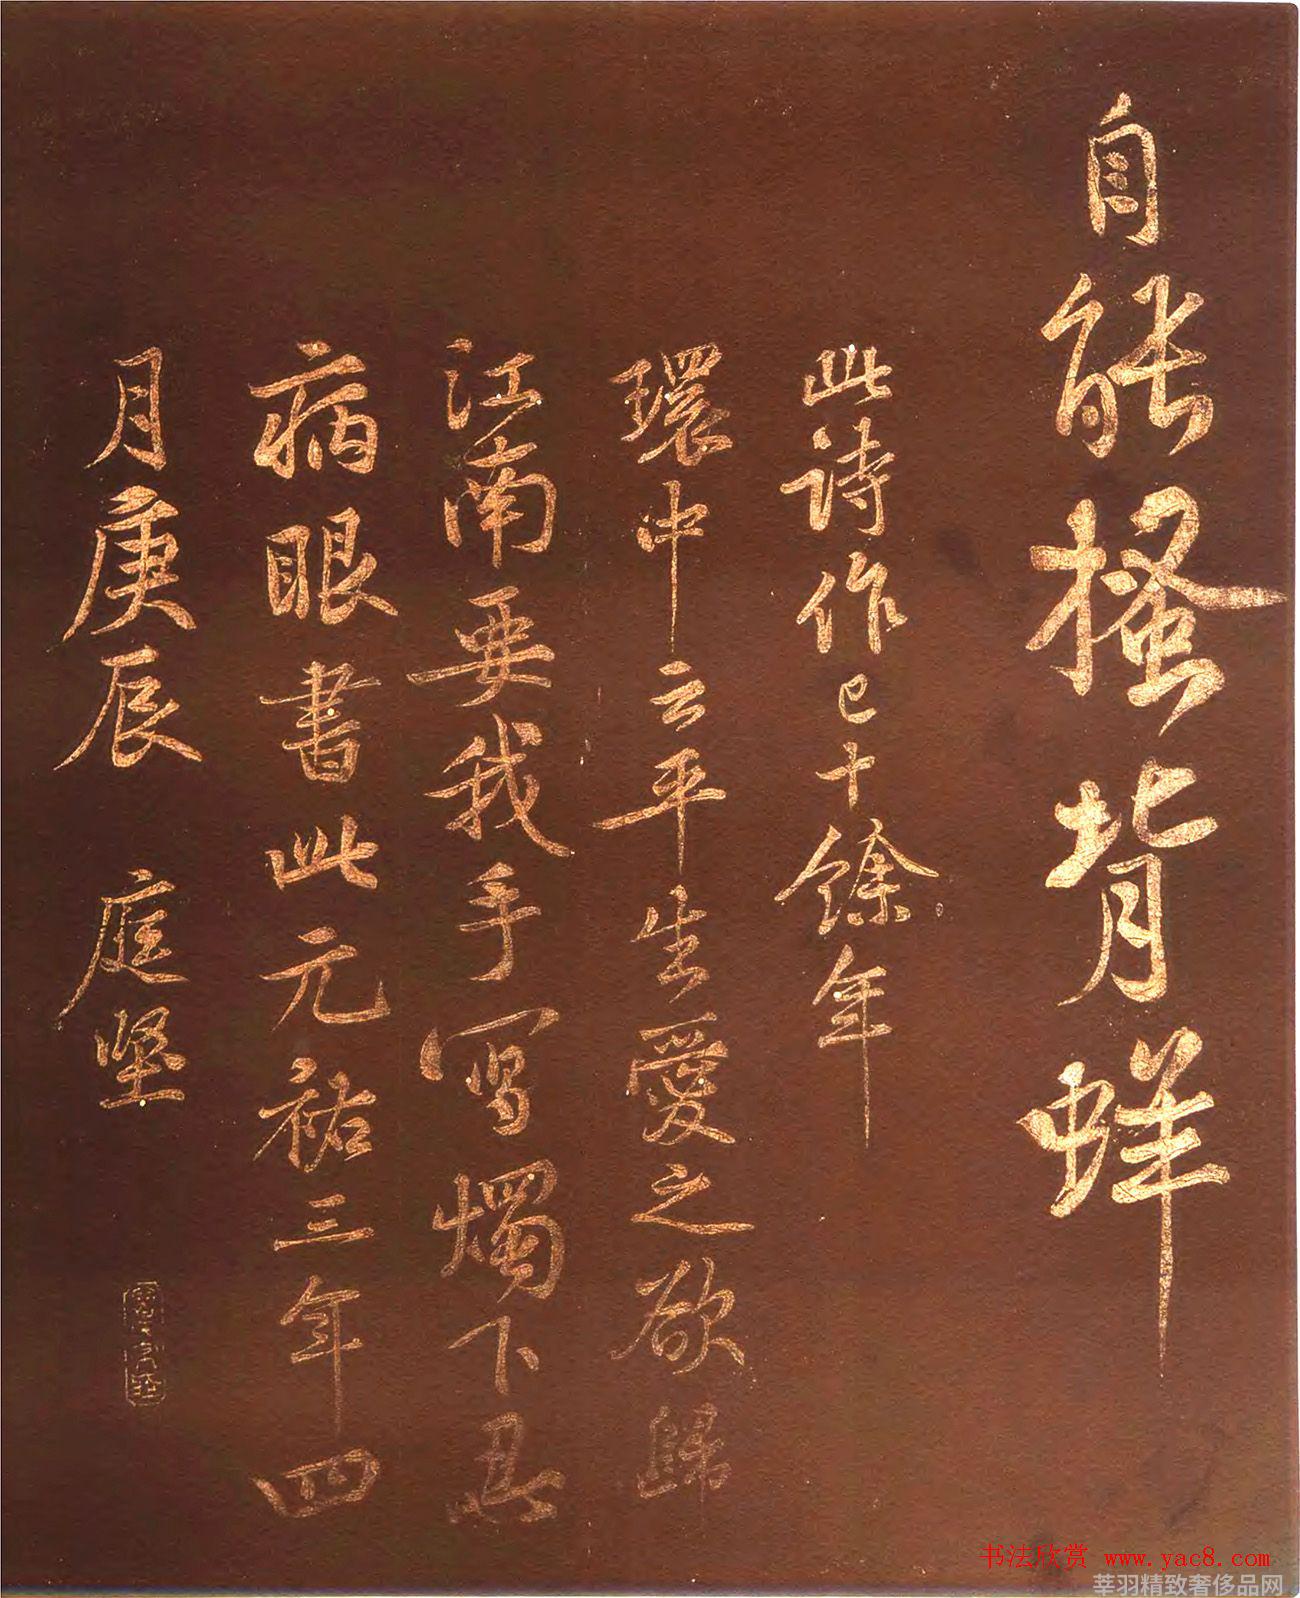 自能搔背蛘
此詩作已十餘年
環中云平生愛之欲歸
江南要我手寫燭下忍
病眼書此元祐三年四
月庚辰 庭堅
书法欣赏 www.yac8.com
莘羽精致奢侈品网